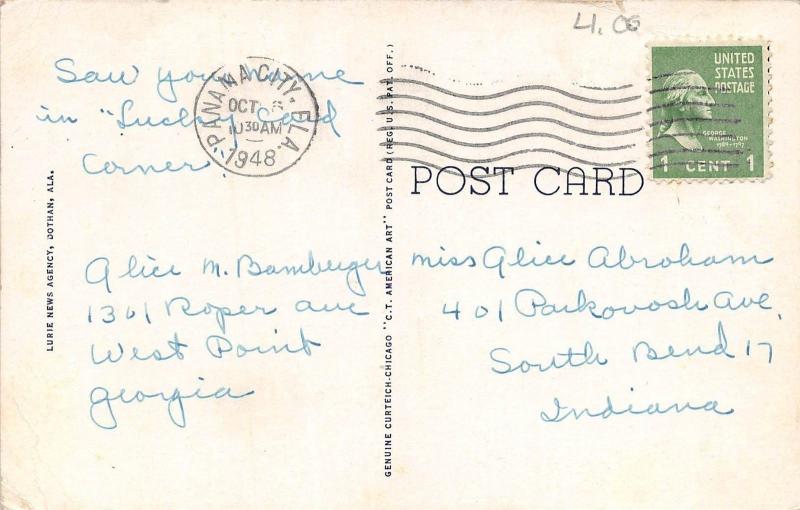 4.00
Saw your name
in "Lucky Card
Corner".
PANAMA CITY, FLA.
OCT 6
10 30 AM
1948
UNITED
STATES
POSTAGE
GEORGE
WASHINGTON
1789-1797
1 CENT 1
POST CARD
Alice M. Bamberger
1301 Roper ave
West Point
Georgia
Miss Alice Abraham
401 Parkovash Ave,
South Bend 17
Indiana
LURIE NEWS AGENCY, DOTHAN, ALA.
GENUINE CURTEICH-CHICAGO "C.T. AMERICAN ART" POST CARD (REG. U.S. PAT. OFF.)